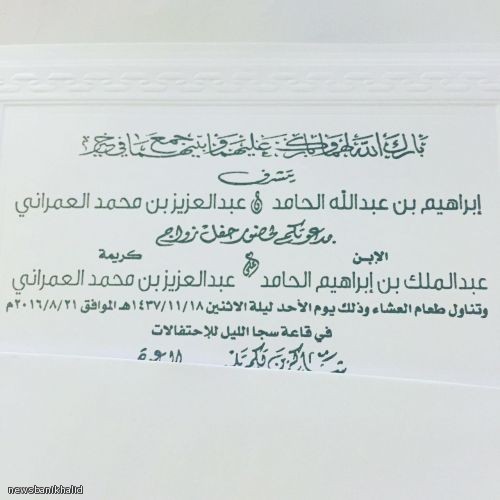 بارك الله لهما وبارك عليهما وجمع بينهما في خير
يتشرف
إبراهيم بن عبدالله الحامد و عبدالعزيز بن محمد العمراني
بدعوتكم لحضور حفل زواج
الابن كريمة
عبدالملك بن إبراهيم الحامد على عبدالعزيز بن محمد العمراني
وتناول طعام العشاء وذلك يوم الأحد ليلة الاثنين ١٤٣٧/١١/١٨هـ الموافق ٢٠١٦/٨/٢١م
في قاعة سجا الليل للإحتفالات
newsbanikhalid